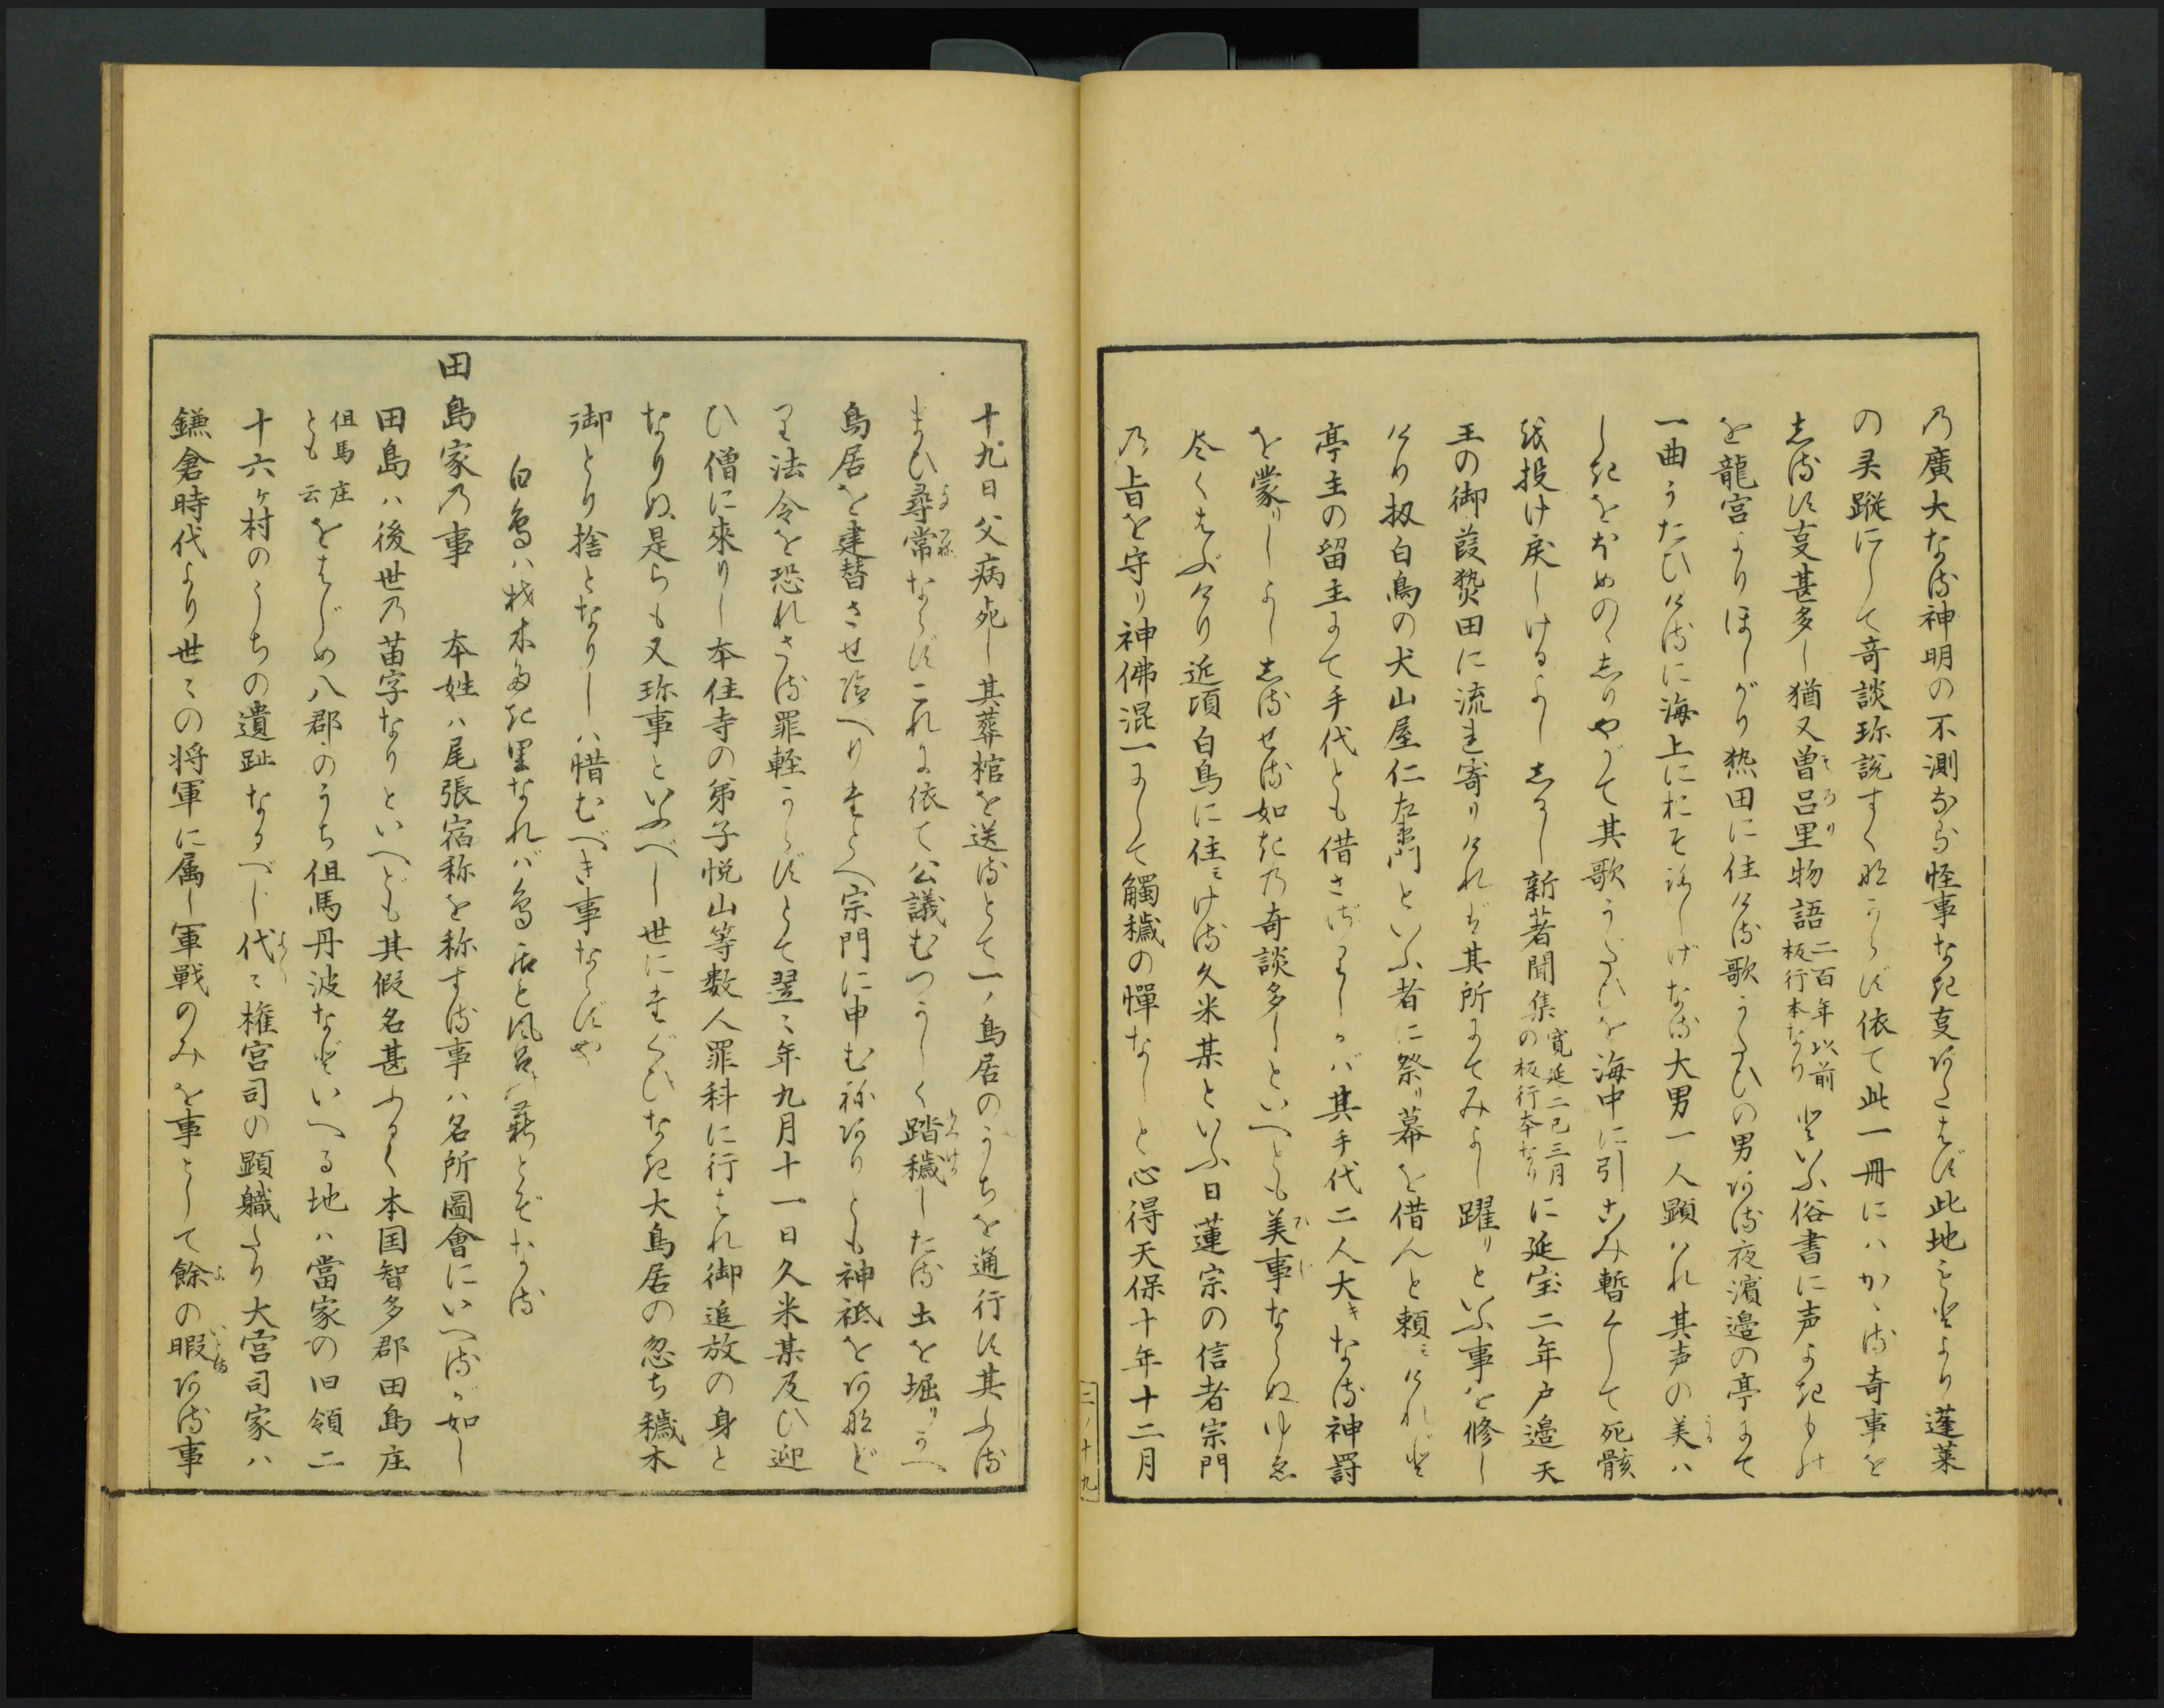 乃廣大なる神明の不測なる怪事なき叓あたはず此地もとより蓬莱
の灵蹤にして奇談珎説すくなからず依て此一冊にハかゝる奇事を
しるす叓甚多し猶又曽呂里物語二百年以前板行本なりといふ俗書に声よきもの
を龍宮よりほしがり熱田に住ける歌うたひの男ある夜濱邉の亭にて
一曲うたひけるに海上におそろしげなる大男一人顕ハれ其声の美ハ
しきをほめのゝしりやがて其歌うたひを海中に引こみ暫くして死骸
を投け戻しけるよししるし新著聞集寛延二己三月の板行本なりに延宝二年戸邉天
王の御葭𤍠田に流れ寄りけれバ其所にてみよし躍りといふ事を修し
けり扨白鳥の犬山屋仁左衛門といふ者に祭り幕を借んと頼ミけれど
亭主の留主にて手代とも借さゞりしかバ其手代二人大きなる神罰
を蒙りしよししるせる如きの奇談多しといへとも美事ならぬゆゑ
尽くはぶけり近頃白鳥に住ミける久米某といふ日蓮宗の信者宗門
乃旨を守り神佛混一にして觸穢の憚なしと心得天保十年十二月
二ノ十九
十九日父病死し其葬棺を送るとて一ノ鳥居のうちを通行す其ふる
まひ尋常ならずこれに依て公議むつかしく踏穢したる土を堀りかへ
鳥居を建替させ給へりたとへ宗門に申むねありとも神祗をあなど
り法令を恐れさる罪軽からずとて翌ミ年九月十一日久米某及ひ迎
ひ僧に來りし本住寺の弟子悦山等数人罪科に行はれ御追放の身と
なりぬ是らも又珎事といふべし世にたぐひなき大鳥居の忽ち穢木
御とり捨となりしハ惜むべき事ならずや
白鳥ハ材木多き里なれバ鳥居と風呂の薪とぞなる
田島家乃事　本姓ハ尾張宿称を称する事ハ名所圖會にいへるが如し
田島ハ後世乃苗字なりといへども其假名甚ふるく本国智多郡田島庄
但馬庄とも云をはじめ八郡のうち但馬丹波などいへる地ハ當家の旧領二
十六ヶ村のうちの遺趾なるべし代ミ権宮司の顕職たり大宮司家ハ
鎌倉時代より世ミの将軍に属し軍戰のみを事として餘の暇ある事